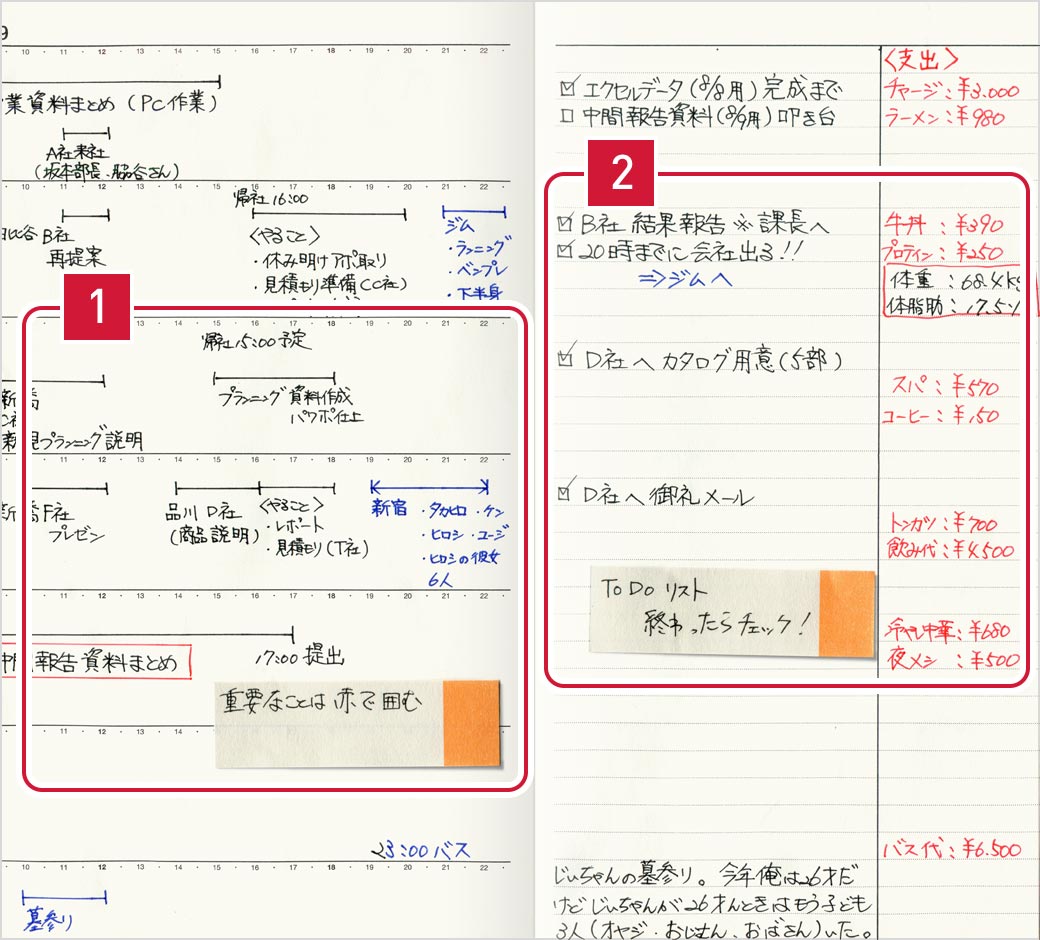 9
10 11 12 13 14 15 16 17 18 19 20 21 22
業資料まとめ (PC作業)
A社来社
(坂本部長、脇谷さん)
10 11 12 13 14 15 16 17 18 19 20 21 22
帰社 16:00
日比谷 B社
再提案
〈やること〉
・休み明けアポ取り
・見積もり準備(C社)
ジム
・ランニング
・ベンプレ
・下半身
1
11 12 13 14 15 16 17 18 19 20 21 22
帰社15:00予定
新橋
プランニング資料作成
パワポ仕上
新規プランニング説明
11 12 13 14 15 16 17 18 19 20 21 22
新橋F社
プレゼン
品川 D社
(商品説明)
〈やること〉
・レポート
・見積もり(T社)
新宿
・タカヒロ ・ケン
・ヒロシ ・ユージ
・ヒロシの彼女
6人
11 12 13 14 15 16 17 18 19 20 21 22
中間報告資料まとめ
17:00 提出
重要なことは赤で囲む
11 12 13 14
23:00バス
10 11 12 13 14 15 16 17 18 19 20 21 22
墓参り
〈支出〉
☑ エクセルデータ(8/8用)完成まで
チャージ:¥3.000
☐ 中間報告資料(8/9用)叩き台
ラーメン:¥980
2
☑ B社 結果報告 ※課長へ
牛丼:¥390
☑ 20時までに会社出る!!
プロテイン:¥250
⇒ジムへ
体重:68.4kg
体脂肪:17.5%
☑ D社へカタログ用意(5部)
スパ:¥570
コーヒー:¥150
☑ D社へ御礼メール
トンカツ:¥700
飲み代:¥4.500
To Do リスト
終わったらチェック!
冷やし中華:¥680
夜メシ:¥500
バス代:¥6.500
じいちゃんの墓参り。今年俺は26才だ
けどじいちゃんが26才んときはもう子ども
3人(オヤジ・おじさん、おばさん)いた。